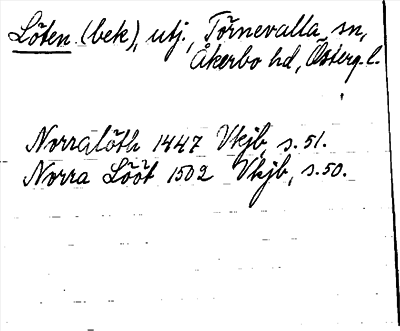 Löten (bek), utj., Törnevalla sn,
Åkerbo hd, Österg. l.
Norralöth 1447 Vkjb, s. 51.
Norra Lööt 1502 Vkjb, s. 50.